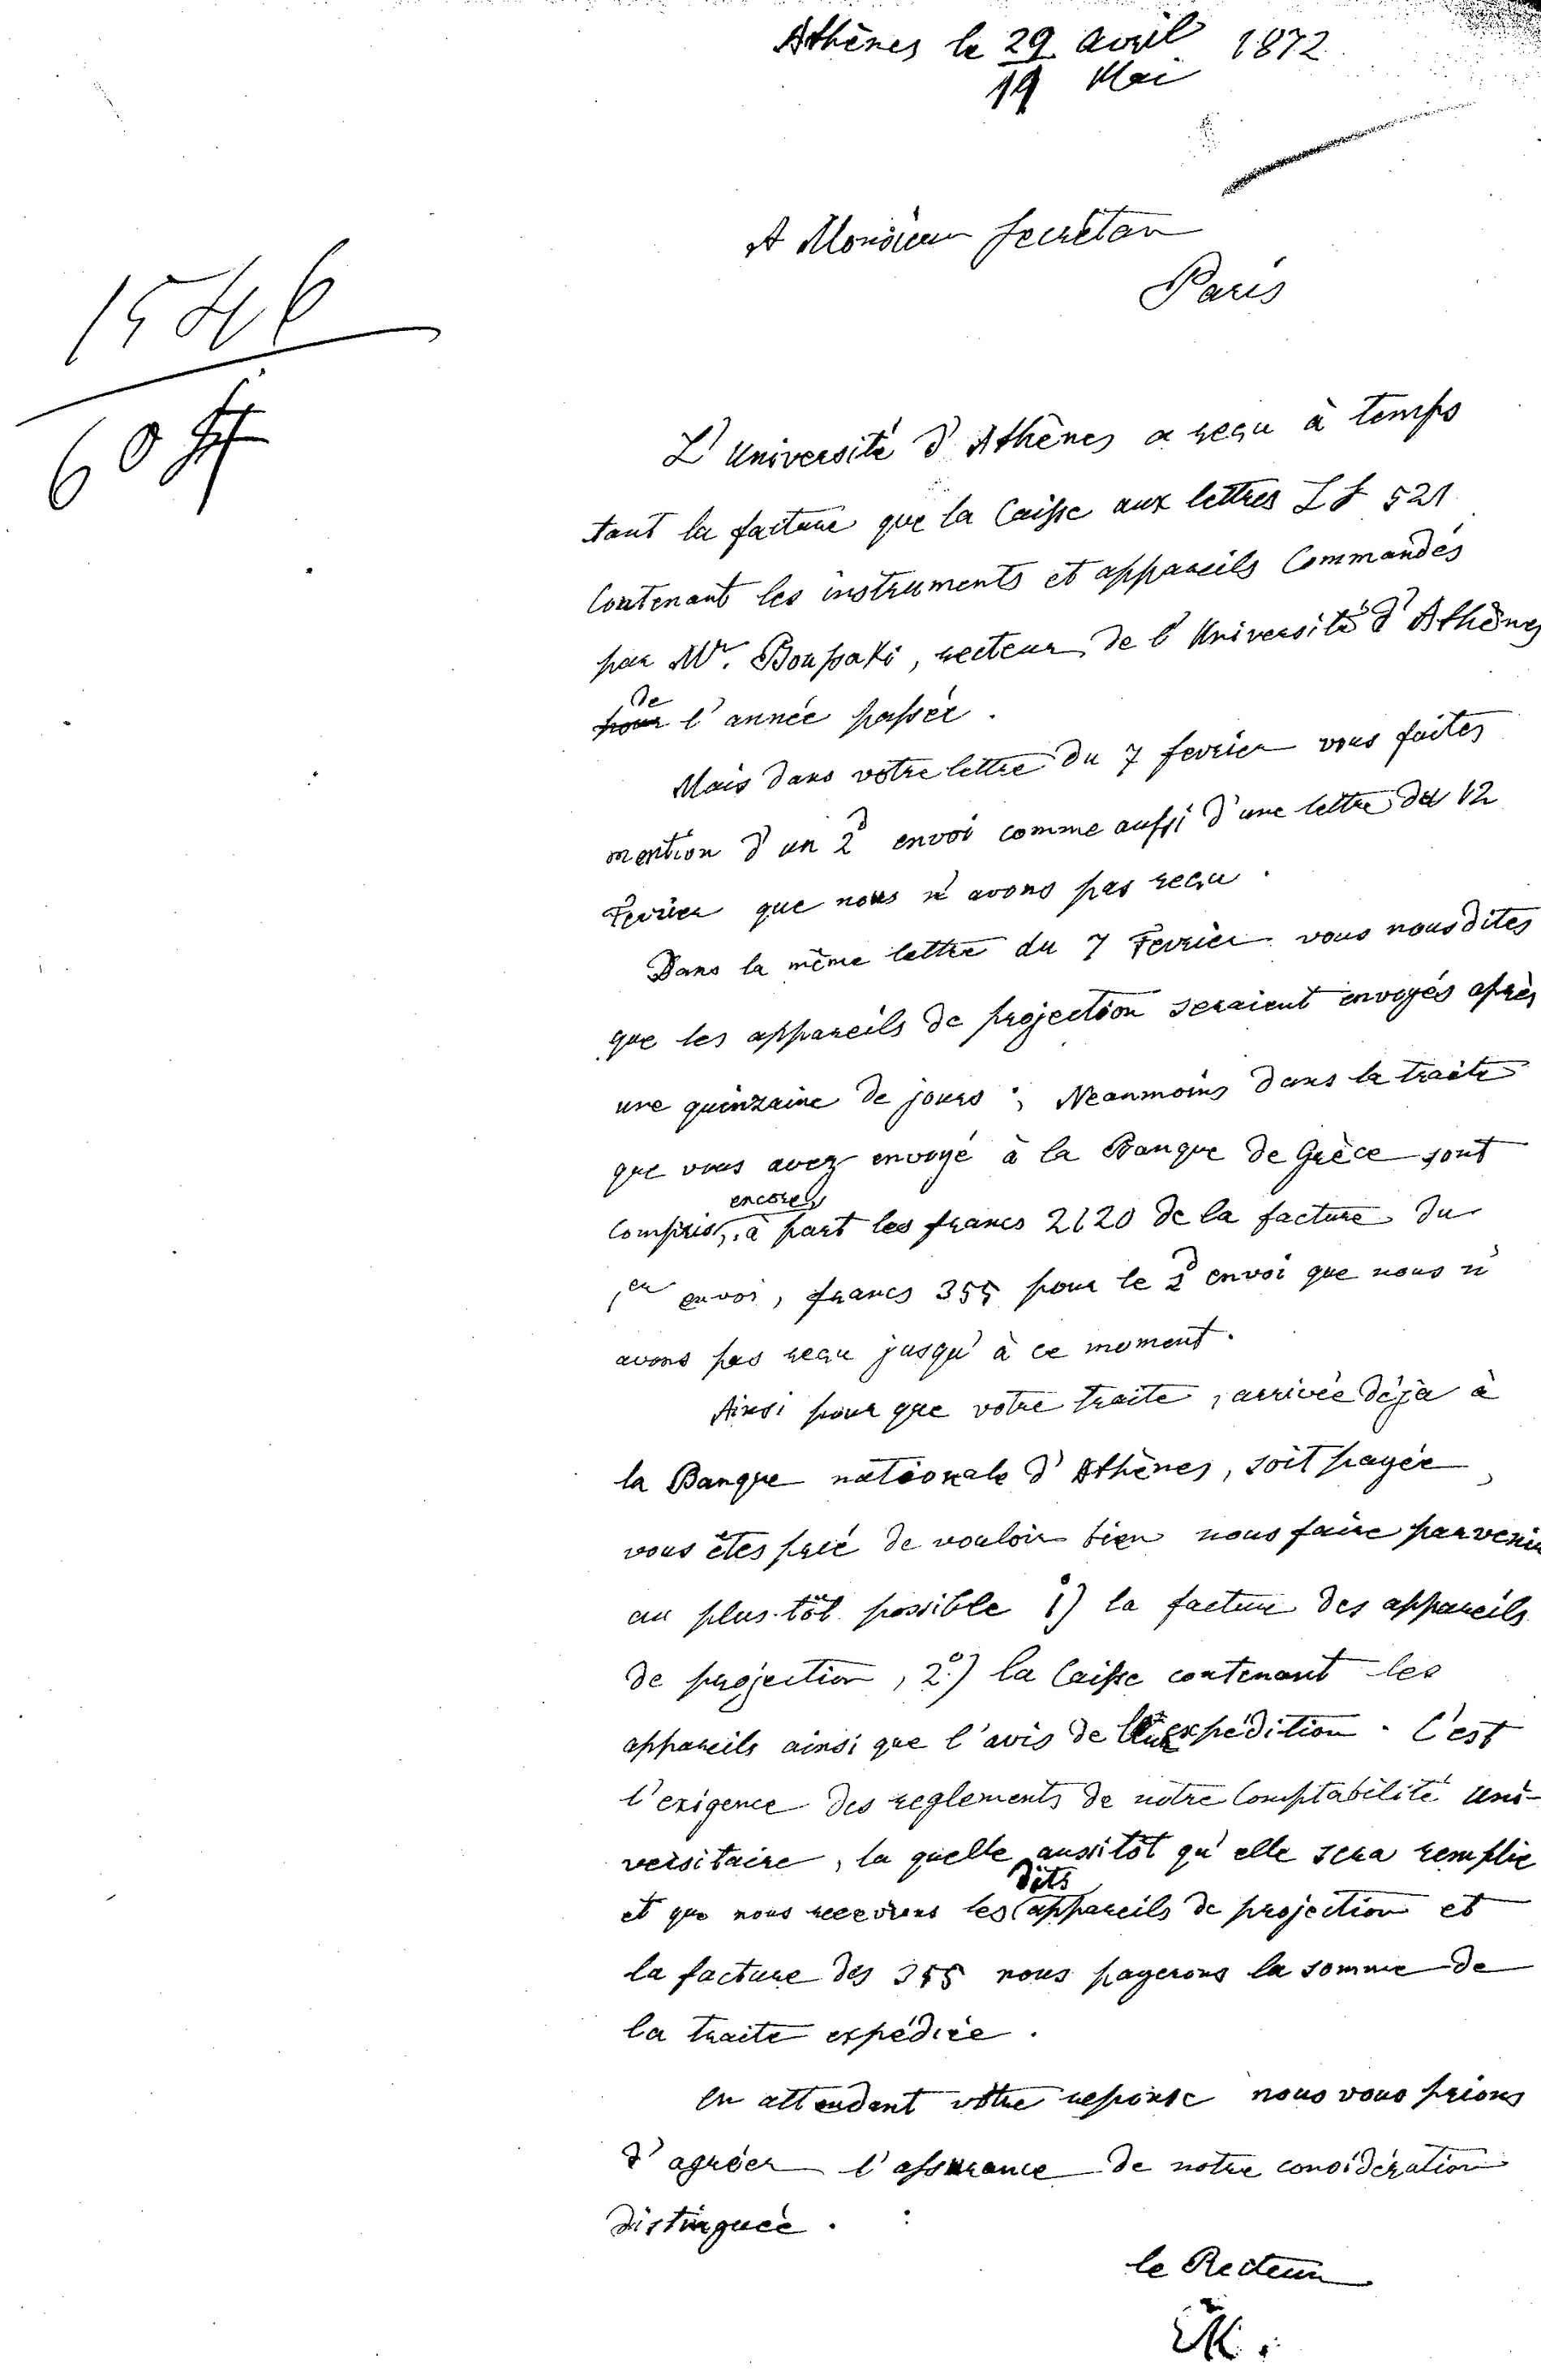 Athènes le 29 avril 1872
19 Mai
A Monsieur Secrétan
Paris
1546
60
L'Université d'Athènes a reçu à temps
tant la facture que la Caisse aux lettres 521
Contenant les instruments et appareils Commandés
par Mr. Bousaki, recteur de l'Université d'Athènes
de
pour l'année passée.
Mais dans votre lettre du 7 fevrier vous faites
mention d'un 2d envoi comme aussi d'une lettre du 12
Fevrier que nous n'avons pas reçu.
Dans la même lettre du 7 Fevrier vous nous dites
que les appareils de projection seraient envoyés après
une quinzaine de jours ; Neanmoins dans la traite
que vous avez envoyé à la Banque de Grèce sont
encore
compris, à part les francs 2120 de la facture du
1er envoi, francs 355 pour le 2d envoi que nous n'
avons pas reçu jusqu'à ce moment.
Ainsi pour que votre traite, arrivée déjà à
la Banque nationale d'Athènes, soit payée,
vous êtes prié de vouloir bien nous faire parvenir
au plus tôt possible 1) la facture des appareils
de projection, 2o) la Caisse contenant les
appareils ainsi que l'avis de expédition. C'est
l'exigence des reglements de nôtre Comptabilité Uni-
versitaire, la quelle aussitôt qu'elle sera remplie
dits
et que nous recevrons les appareils de projection et
la facture des 355 nous payerons la somme de
la traite expédiée.
En attendant vôtre reponse nous vous prions
d'agréer l'assurance de notre considération
distinguée.
le Recteur